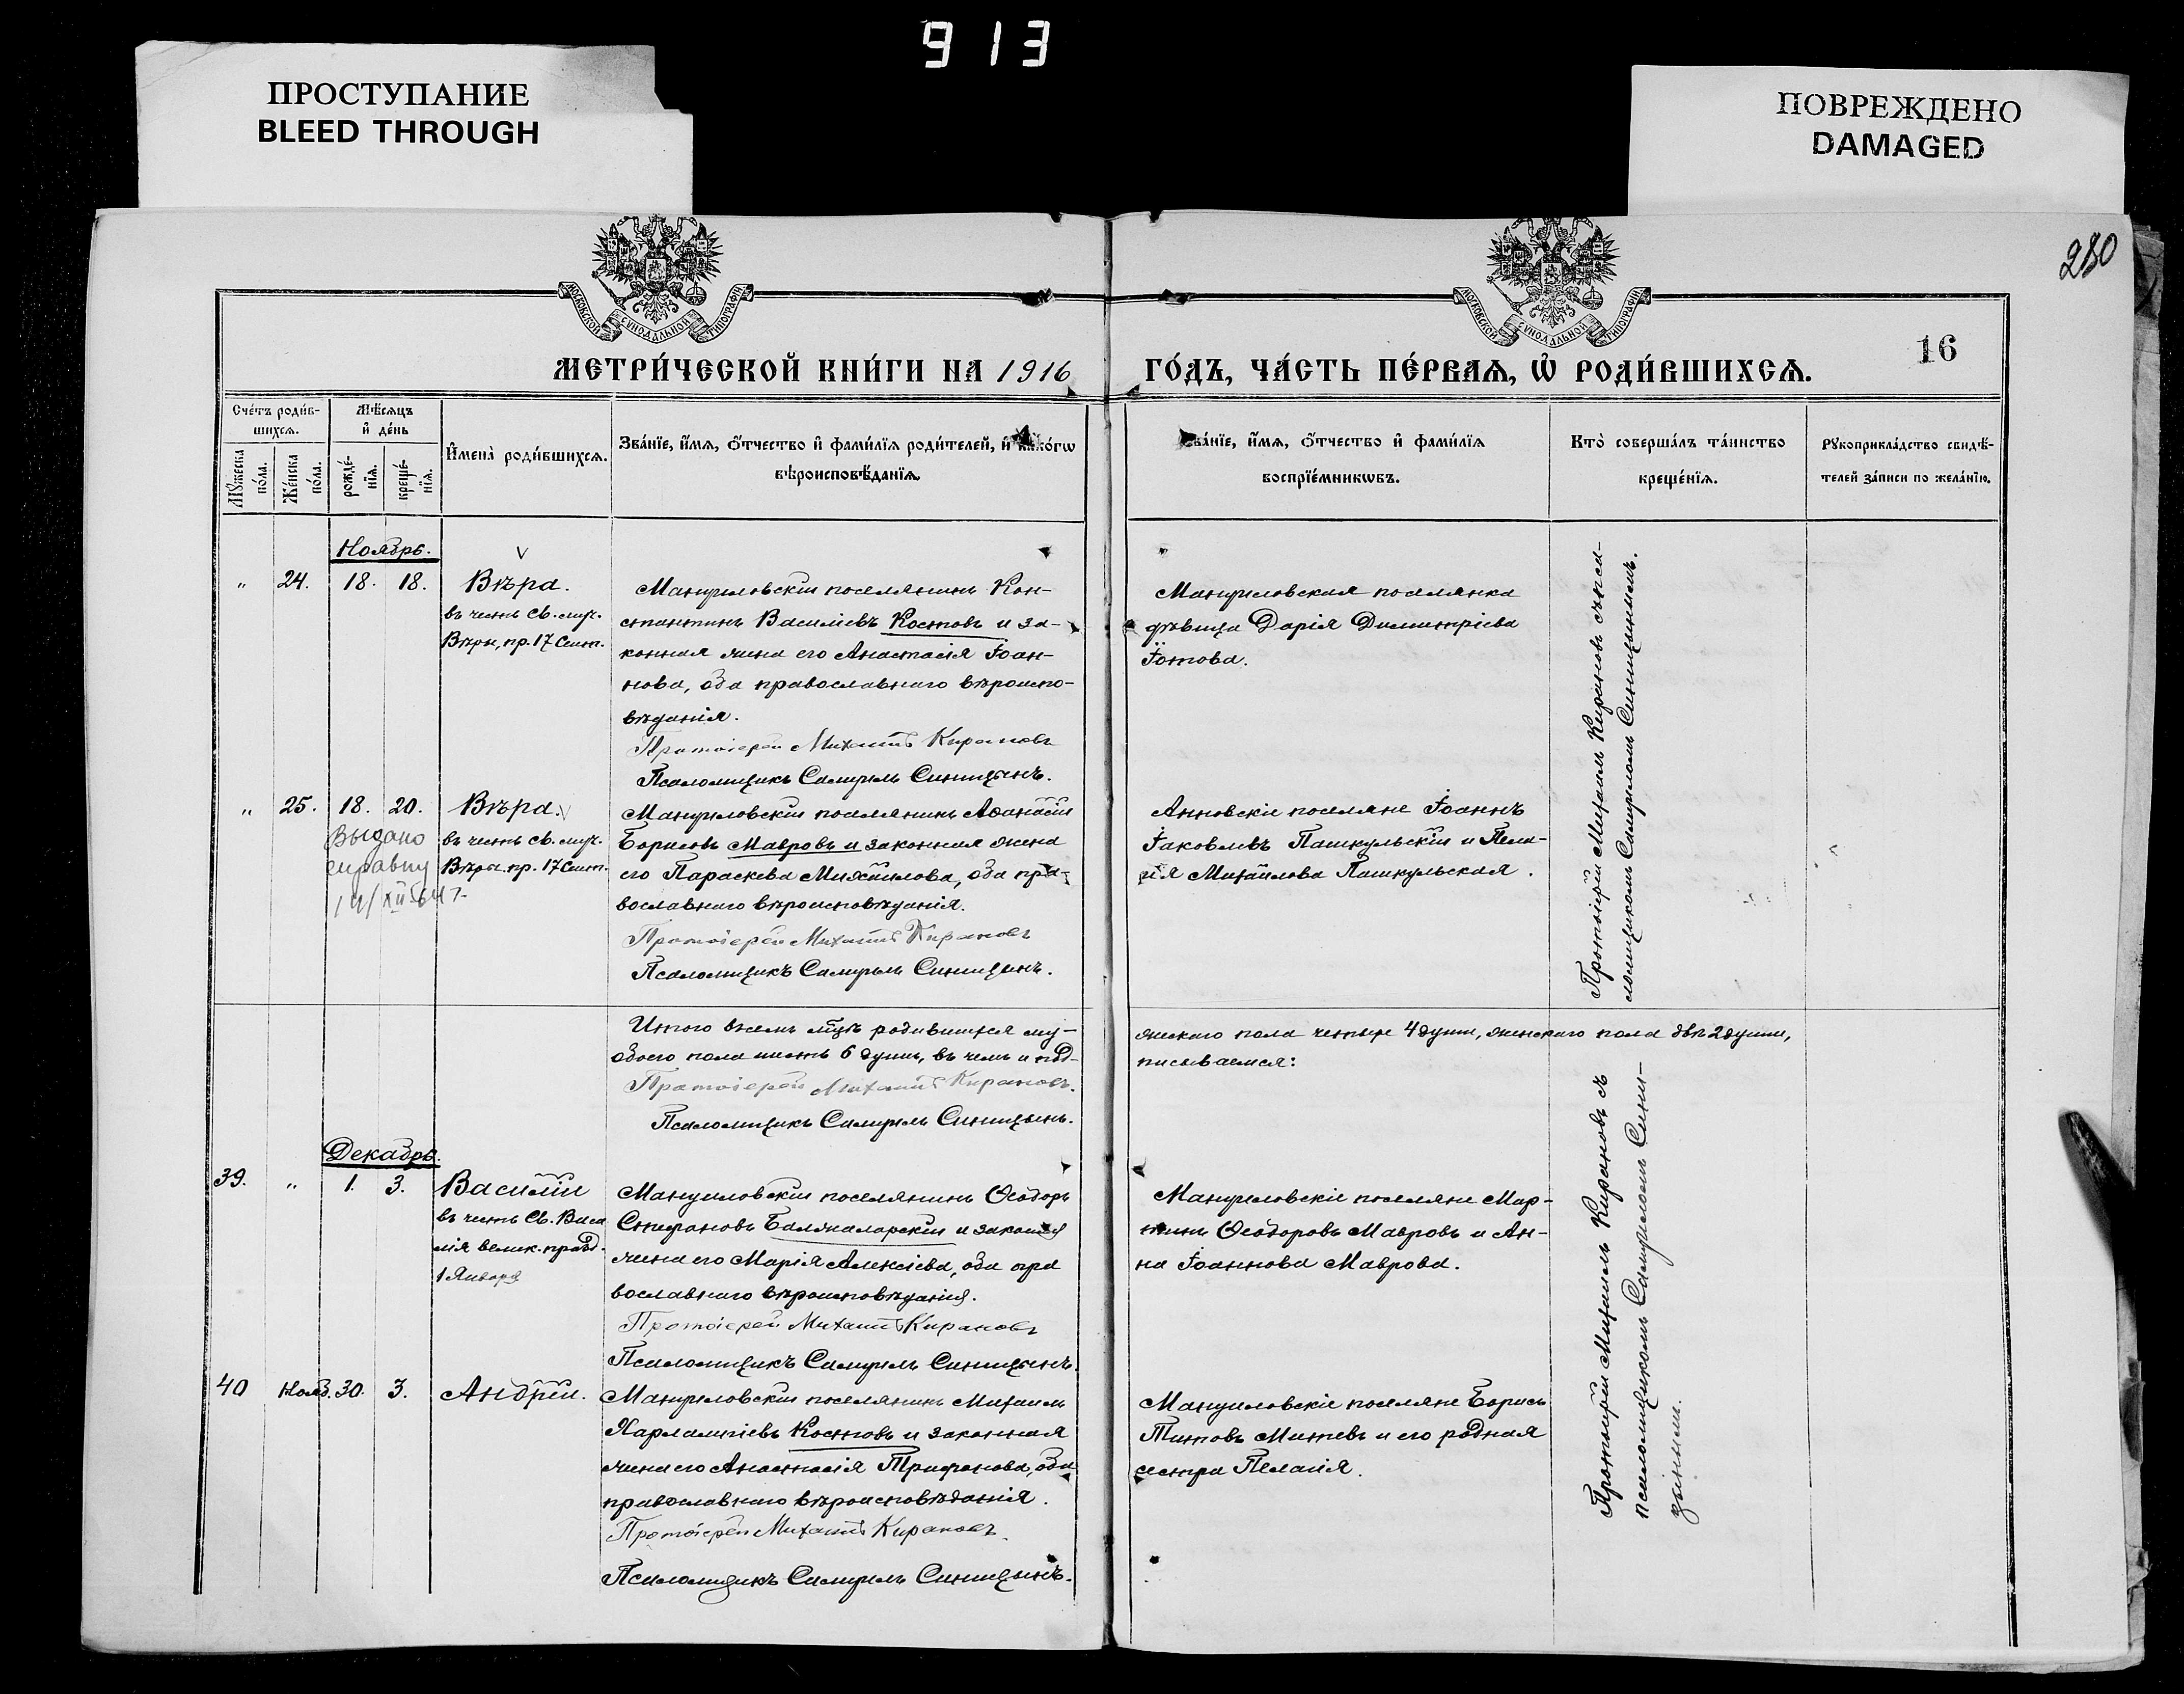 913
ПРОСТУПАНИЕ
BLEED THROUGH
ПОВРЕЖДЕНО
DAMAGED
280
МОСКОВСКОЙ СѴНОДАЛЬНОЙ ТИПОГРАФІИ
МОСКОВСКОЙ СѴНОДАЛЬНОЙ ТИПОГРАФІИ
16
МЕТРИ́ЧЕСКОЙ КНИ́ГИ НА 1916 ГО́ДЪ, ЧА́СТЬ ПЕ́РВАѦ, Ѡ҆ РОДИ́ВШИХСѦ.
Сче́тъ роди́в-
шихсѧ.
Мѣ́сѧцъ
и҆ де́нь
Мꙋ́жеска
по́ла.
Же́нска
по́ла.
рожде́-
нїѧ.
креще́-
нїѧ.
И҆мена̀ роди́вшихсѧ.
Зва́нїе, и҆́мѧ, ѻ҆́тчество и҆ фами́лїѧ роди́телей, и҆ како́гѡ
вѣроисповѣ́данїѧ.
Зва́нїе, и҆́мѧ, ѻ҆́тчество и҆ фами́лїѧ
воспрїе́мникѡвъ.
Кто̀ соверша́лъ та́инство
креще́нїѧ.
Рꙋкоприкла́дство свидѣ́-
телей за́писи по жела́нїю.
Ноябрь.
„ 24. 18. 18. Вѣра.
въ честь Св. муч.
Вѣры, пр. 17 Сент.
Мануиловскій поселянинъ Кон-
стантинъ Василіевъ Костовъ и за-
конная жена его Анастасія Іоан-
нова, оба православнаго вѣроиспо-
вѣданія.
Протоіерей Михаилъ Кирановъ
Псаломщикъ Самуилъ Синицынъ.
Мануиловская поселянка
дѣвица Дарія Димитріева
Іотова.
Протоіерей Михаилъ Кирановъ съ пса-
ломщикомъ Самуиломъ Синицынымъ.
„ 25. 18. 20. Вѣра.
Выдано
справку
въ честь Св. муч.
Вѣры. пр. 17 Сент.
Мануиловскій поселянинъ Аѳанасій
Борисовъ Мавровъ и законная жена
его Параскева Михаилова, оба пра-
вославнаго вѣроисповѣданія.
Протоіерей Михаилъ Кирановъ
Псаломщикъ Самуилъ Синицынъ.
Анновскіе поселяне Іоаннъ
Іаковлевъ Пашкульскій и Пела-
гія Михаилова Пашкульская.
Итого всемъ м-цѣ родившихся му-
жескаго пола четыре 4 души, женскаго пола двѣ 2 души,
обоего пола шесть 6 душъ, въ чемъ и под-
писываемся:
Протоіерей Михаилъ Кирановъ.
Псаломщикъ Самуилъ Синицынъ.
Декабрь.
39. „ 1. 3. Василій
въ честь Св. Васи
лія велик. празд.
1 Января
Мануиловскій поселянинъ Ѳеодоръ
Стефановъ Балжаларскій и законная
жена его Марія Алексіева, оба пра
вославнаго вѣроисповѣданія.
Протоіерей Михаилъ Кирановъ
Псаломщикъ Самуилъ Синицынъ.
Мануиловскіе поселяне Мар-
тинъ Ѳеодоровъ Мавровъ и Ан-
на Іоаннова Маврова.
Протоіерей Михаилъ Кирановъ съ
псаломщикомъ Самуиломъ Сини-
цынымъ.
40 Нояб. 30. 3. Андрей.
Мануиловскій поселянинъ Михаилъ
Харлампіевъ Костовъ и законная
жена его Анастасія Трифонова, оба
православнаго вѣроисповѣданія.
Протоіерей Михаилъ Кирановъ
Псаломщикъ Самуилъ Синицынъ.
Мануиловскіе поселяне Борисъ
Титовъ Митевъ и его родная
сестра Пелагія.